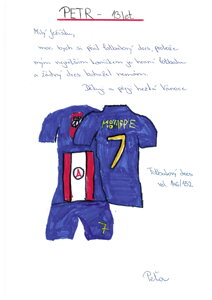 PETR - 13 let
Milý Ježíšku,
moc bych si přál fotbalový dres, protože
mým největším koníčkem je hraní fotbalu
a žádný dres bohužel nemám.
Děkuji a přeji hezké Vánoce
MBAPPE
7
7
Fotbalový dres
vel. 146/152
Peťa